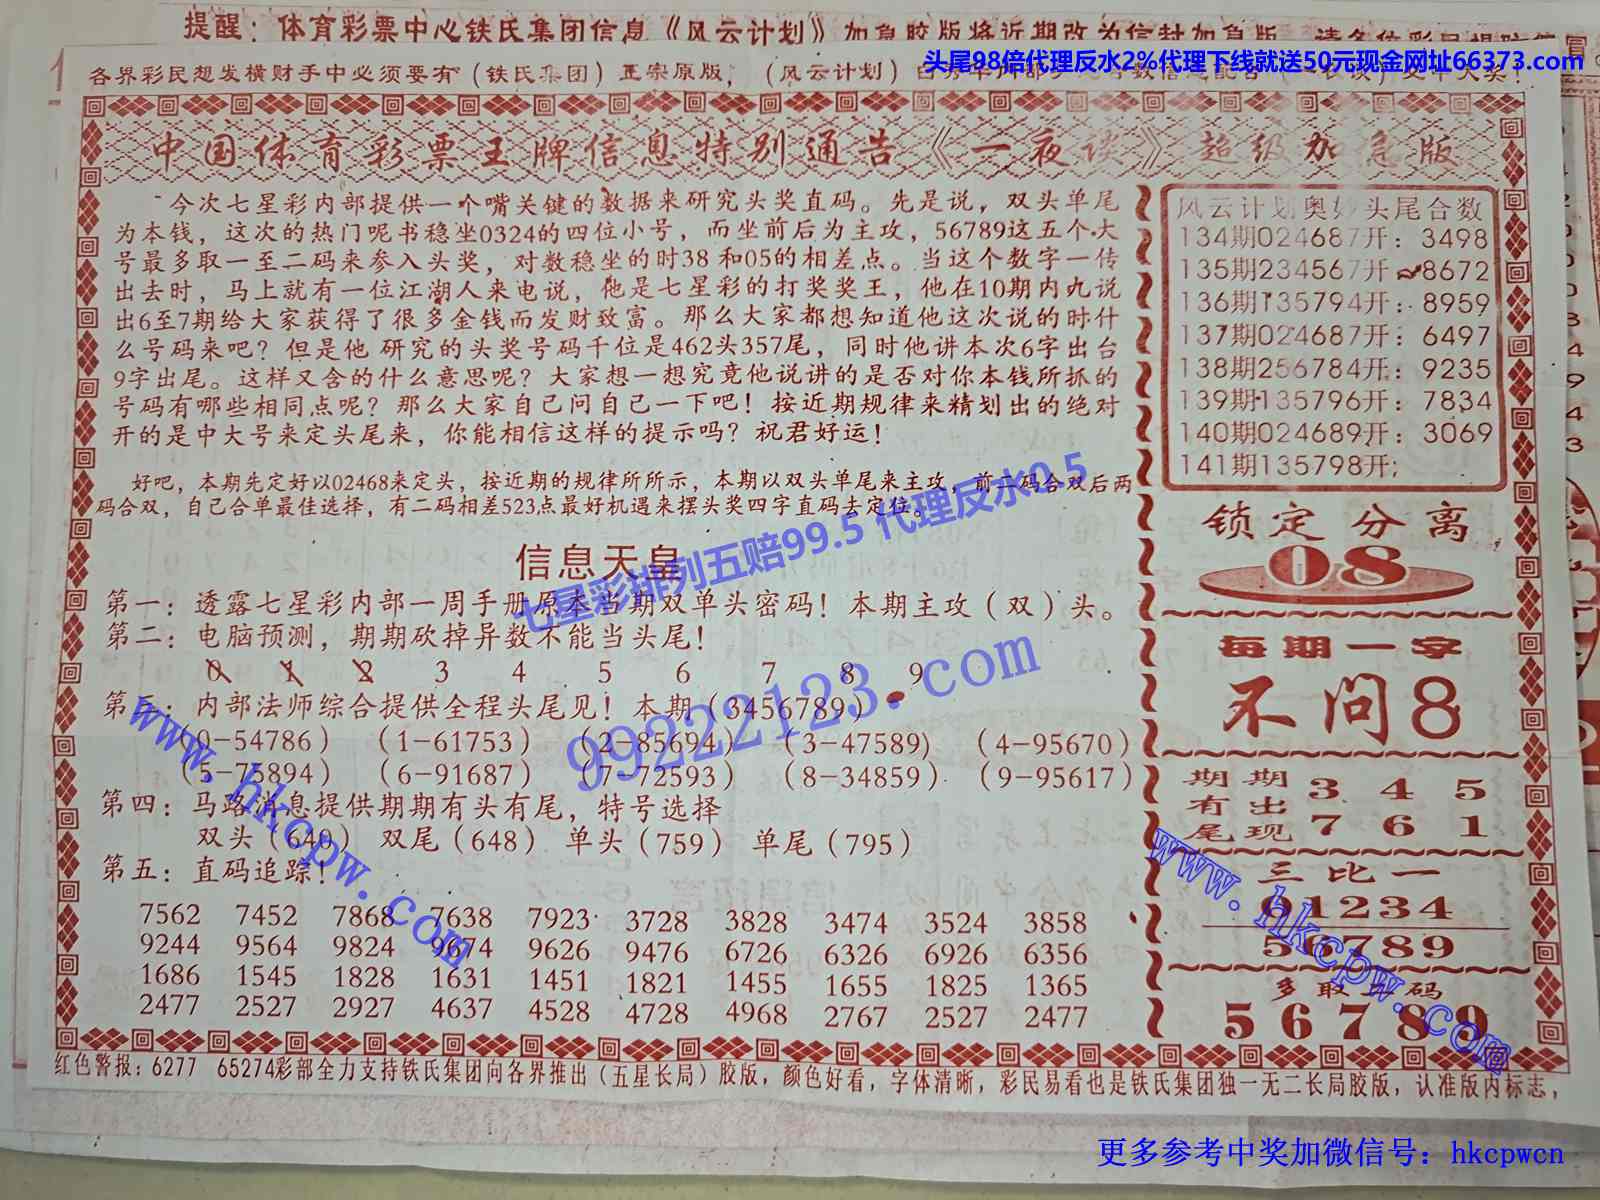 提醒：体育彩票中心铁氏集团信息《风云计划》加急胶版将近期改为信封加急版
头尾98倍代理反水2%代理下线就送50元现金网址66373.com
各界彩民想发横财手中必须要有（铁氏集团）正宗原版，（风云计划）
中国体育彩票王牌信息特别通告《一夜谈》超级加急版
今次七星彩内部提供一个嘴关键的数据来研究头奖直码。先是说，双头单尾
为本钱，这次的热门呢书稳坐0324的四位小号，而坐前后为主攻，56789这五个大
号最多取一至二码来参入头奖，对数稳坐的时38和05的相差点。当这个数字一传
出去时，马上就有一位江湖人来电说，他是七星彩的打奖奖王，他在10期内九说
出6至7期给大家获得了很多金钱而发财致富。那么大家都想知道他这次说的时什
么号码来吧？但是他研究的头奖号码千位是462头357尾，同时他讲本次6字出台
9字出尾。这样又含的什么意思呢？大家想一想究竟他说讲的是否对你本钱所抓的
号码有哪些相同点呢？那么大家自己问自己一下吧！按近期规律来精划出的绝对
开的是中大号来定头尾来，你能相信这样的提示吗？祝君好运！
好吧，本期先定好以02468来定头，按近期的规律所所示，本期以双头单尾来主攻，前二码合双后两
码合双，自己合单最佳选择，有二码相差523点最好机遇来摆头奖四字直码去定位。
七星彩排列五赔99.5 代理反水0.5
信息天皇
第一：透露七星彩内部一周手册原本当期双单头密码！本期主攻（双）头。
第二：电脑预测，期期砍掉异数不能当头尾！
0 1 2 3 4 5 6 7 8 9
第三：内部法师综合提供全程头尾见！本期（3456789）
99222123.com
（0-54786）（1-61753）（2-85694）（3-47589）（4-95670）
（5-75894）（6-91687）（7-72593）（8-34859）（9-95617）
第四：马路消息提供期期有头有尾，特号选择
双头（640） 双尾（648） 单头（759） 单尾（795）
第五：直码追踪！
www.hkcpw.com
7562 7452 7868 7638 7923 3728 3828 3474 3524 3858
9244 9564 9824 9674 9626 9476 6726 6326 6926 6356
1686 1545 1828 1631 1451 1821 1455 1655 1825 1365
2477 2527 2927 4637 4528 4728 4968 2767 2527 2477
风云计划奥妙头尾合数
134期024687开：3498
135期234567开：8672
136期135794开：8959
137期024687开：6497
138期256784开：9235
139期135796开：7834
140期024689开：3069
141期135798开；
锁定分离
08
每期一字
不问8
期期 3 4 5
有出
尾现 7 6 1
三比一
01234
56789
多取二码
56789
www.hkcpw.com
红色警报：6277 65274彩部全力支持铁氏集团向各界推出（五星长局）胶版，颜色好看，字体清晰，彩民易看也是铁氏集团独一无二长局胶版，认准版内标志，
更多参考中奖加微信号：hkcpwcn